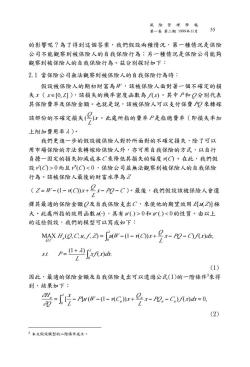 風 險 管 理 學 報
第一卷 第二期 1999年11月 55
的影響呢？為了得到這個答案，我們假設兩種情況，第一種情況是保險
公司不能觀察到被保險人的自我保險行為；另一種情況是保險公司能夠
觀察到被保險人的自我保險行為，茲分別探討如下：
2.1 當保險公司無法觀察到被保險人的自我保險行為時：
假設被保險人的期初財富為W，該被保險人面對著一個不確定的損
失x（x∈[0,L]），該損失的機率密度函數為f(x)。其中P和Q分別代表
其保險費率及保險金額。也就是說，該被保險人可以支付保費PQ來轉嫁
該部份的不確定損失(Q/L)x，此處所指的費率P是指總費率（即損失率加
上附加費用率λ）。
我們更進一步的假設被保險人對於所面對的不確定損失，除了可以
用市場保險的方法來轉嫁給保險人外，亦可用自我保險的方式，以自行
負擔一固定的損失抑減成本C來降低其損失的幅度r(C)。在此，我們假
設r'(C)>0而且r''(C)<0。保險公司並無法觀察到被保險人的自我保險
行為。該被保險人最後的財富水準為Z
（Z=W-(1-r(C))x+Q/L x-PQ-C）。最後，我們假設該被保險人會選
擇其最適的保險金額Q及自我保險支出C，來使他的期望效用E[u(Z)]極
大，此處所指的效用函數u(·)，具有u'(·)>0和u''(·)<0的性質。由以上
的這些假設，我們的模型可以寫成如下：
MAX H_u(Q,C,u,f,Z)=∫_0^L u(W-(1-r(C))x+Q/L x-PQ-C)f(x)dx,
s.t. P=(1+λ)/L ∫_0^L xf(x)dx.
(1)
因此，最適的保險金額及自我保險支出可以透過公式(1)的一階條件²來得
到，結果如下：
∂H_u/∂Q=∫_0^L [x/L-P]u'(W-(1-r(C_u))x+Q_u/L x-PQ_u-C_u)f(x)dx=0,
(2)